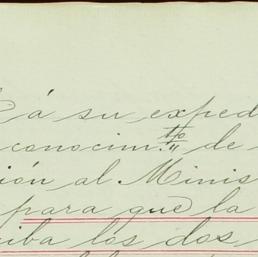 á su exped
conocim.to de
ión al Minis
para que la
iba los dos